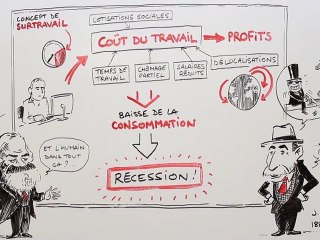 CONCEPT DE
SURTRAVAIL
COTISATIONS SOCIALES
COÛT DU TRAVAIL
PROFITS
TEMPS DE
TRAVAIL
CHÔMAGE
PARTIEL
SALAIRES
RÉDUITS
DÉLOCALISATIONS
BAISSE DE LA
CONSOMMATION
ET L'HUMAIN
DANS TOUT
ÇA ?
RÉCESSION !
J.